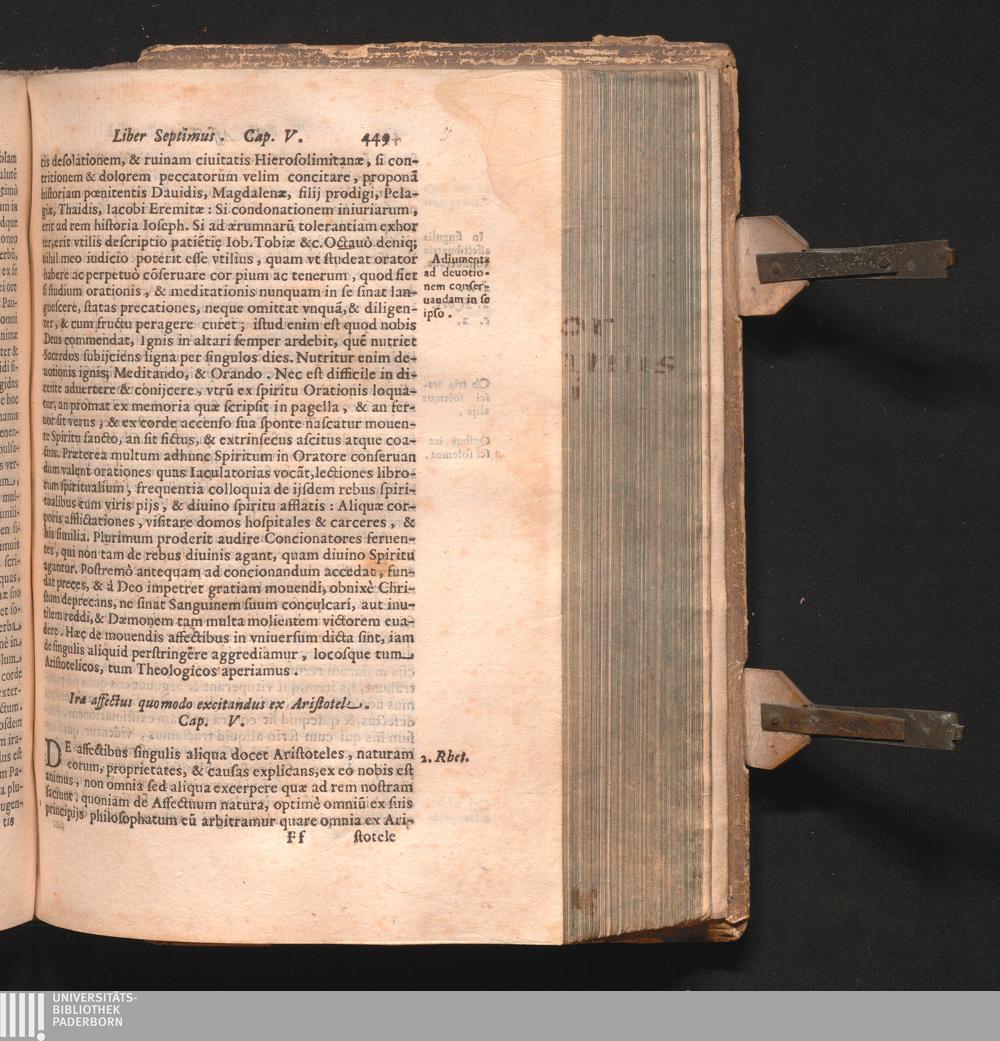 Liber Septimus. Cap. V. 449
tis desolationem, & ruinam ciuitatis Hierosolimitanæ, si con-
tritionem & dolorem peccatorum velim concitare, proponā
historiam pœnitentis Dauidis, Magdalenæ, filij prodigi, Pela-
giæ, Thaidis, Iacobi Eremitæ: Si condonationem iniuriarum,
erit ad rem historia Ioseph. Si ad ærumnarū tolerantiam exhor
ter, erit vtilis descriptio patiētię Iob. Tobiæ &c. Octauò deniq;
nihil meo iudicio poterit esse vtilius, quam vt studeat orator
habere ac perpetuò cōseruare cor pium ac tenerum, quod fiet
si studium orationis, & meditationis nunquam in se sinat lan-
guescere, statas precationes, neque omittat vnquā, & diligen-
ter, & cum fructu peragere curet; istud enim est quod nobis
Deus commendat, Ignis in altari semper ardebit, quē nutriet
Sacerdos subijciens ligna per singulos dies. Nutritur enim de-
uotionis ignis; Meditando, & Orando. Nec est difficile in di-
cente aduertere & conijcere, vtrū ex spiritu Orationis loqua-
tur, an promat ex memoria quæ scripsit in pagella, & an fer-
uor sit verus, & ex corde accenso sua sponte nascatur mouen-
te Spiritu sancto, an sit fictus, & extrinsecus ascitus atque coa-
ctus. Præterea multum adhunc Spiritum in Oratore conseruan
dum valent orationes quas Iaculatorias vocāt, lectiones libro-
rum spiritualium, frequentia colloquia de ijsdem rebus spiri-
tualibus cum viris pijs, & diuino spiritu afflatis: Aliquæ cor-
poris afflictationes, visitare domos hospitales & carceres, &
his similia. Plurimum proderit audire Concionatores feruen-
tes, qui non tam de rebus diuinis agant, quam diuino Spiritu
agantur. Postremò antequam ad concionandum accedat, fun-
dat preces, & à Deo impetret gratiam mouendi, obnixè Chri-
stum deprecans, ne sinat Sanguinem suum conculcari, aut inu-
tilem reddi, & Dæmonem tam multa molientem victorem eua-
dere. Hæc de mouendis affectibus in vniuersum dicta sint, iam
de singulis aliquid perstringere aggrediamur, locosque tum
Aristotelicos, tum Theologicos aperiamus.
Adiumenta
ad deuotio-
nem conser-
uandam in se
ipso.
Iræ affectus quomodo excitandus ex Aristotele.
Cap. V.
DE affectibus singulis aliqua docet Aristoteles, naturam
eorum, proprietates, & causas explicans, ex eo nobis est
animus, non omnia sed aliqua excerpere quæ ad rem nostram
faciunt. quoniam de Affectuum natura, optimè omniū ex suis
principijs philosophatum eū arbitramur quare omnia ex Ari-
2. Rhet.
Ff stotele
UNIVERSITÄTS-
BIBLIOTHEK
PADERBORN